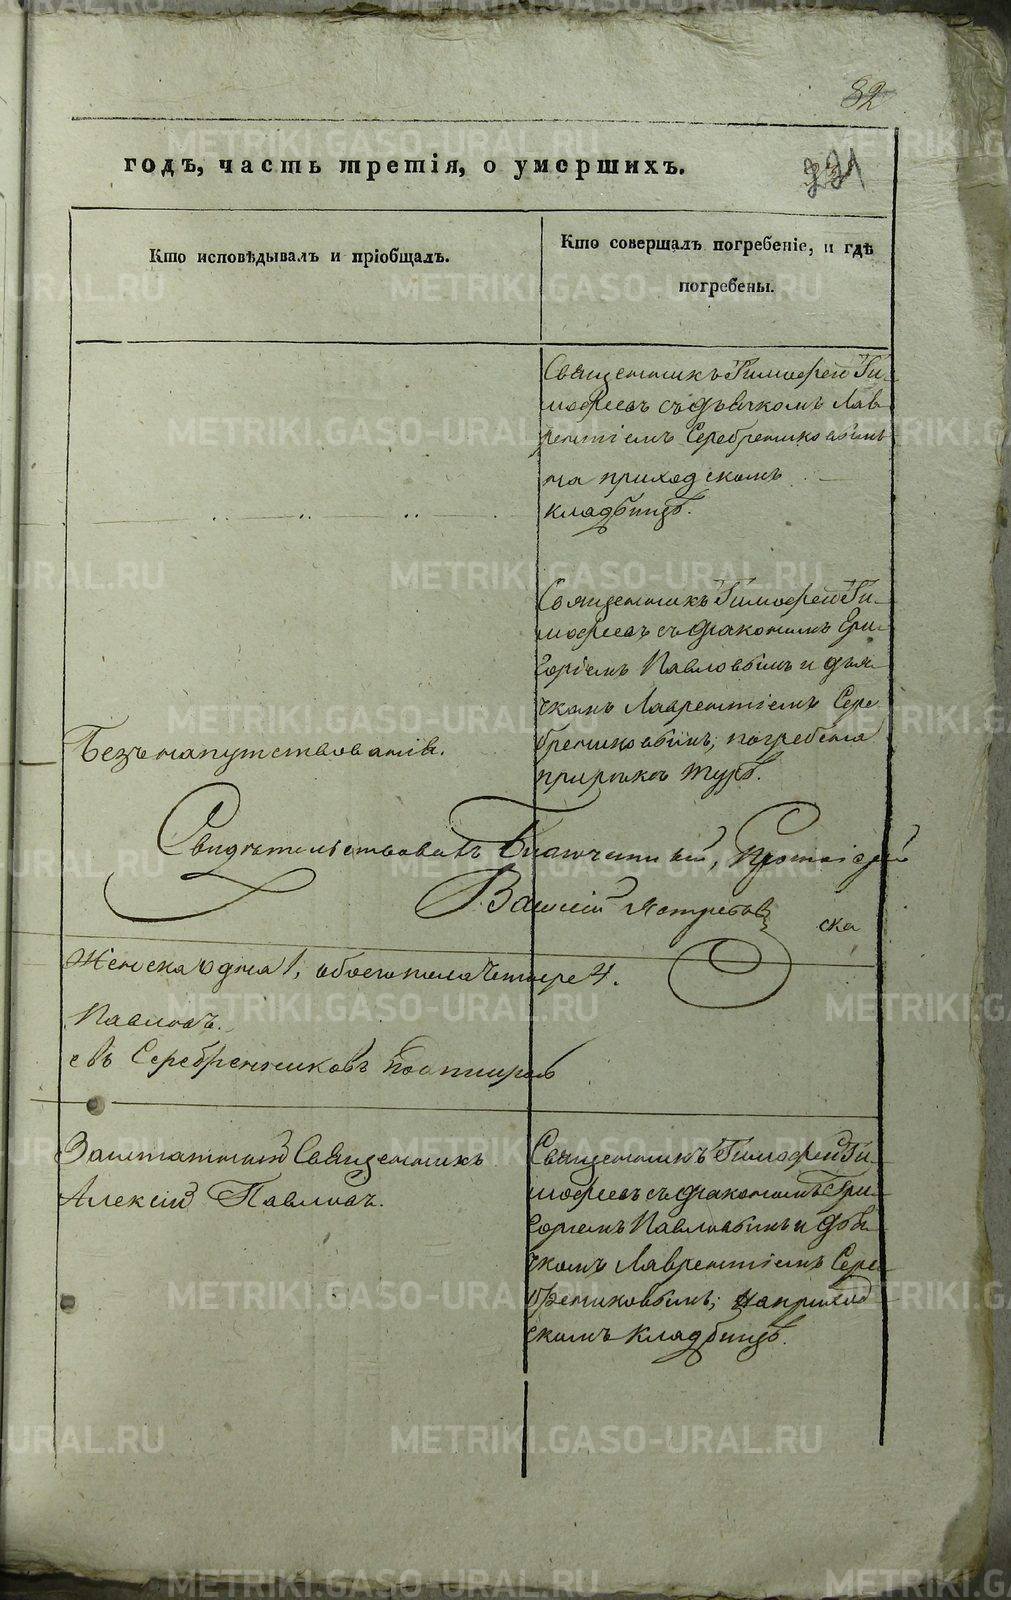 82
годъ, часть третія, о умершихъ.
331
Кто исповѣдывалъ и пріобщалъ.
Кто совершалъ погребеніе, и гдѣ
погребены.
Священникъ Тимофей Ти-
мофеевъ съ дьячкомъ Лав
рентіемъ Серебрениковымъ
на приходскомъ
кладбищѣ.
Священникъ Тимофей Ти-
мофеевъ съ діакономъ Гри-
горіемъ Павловымъ и дья-
чкомъ Лаврентіемъ Сере
брениковымъ; погребена
при рѣкѣ Турѣ.
Безъ напутствованія.
Свидѣтельствовалъ Благочинный, Протоіерей
Василій Ястребов
ска
Женска одна 1, обоего пола четыре 4.
Павловъ.
евъ Серебрениковъ
Заштатный Священникъ
Алексій Павловъ.
Священникъ Тимофей Ти-
мофеевъ съ діакономъ Гри-
горіемъ Павловымъ и дья
чкомъ Лаврентіемъ Сере
брениковымъ; на приход
скомъ кладбищѣ.
METRIKI.GASO-URAL.RU